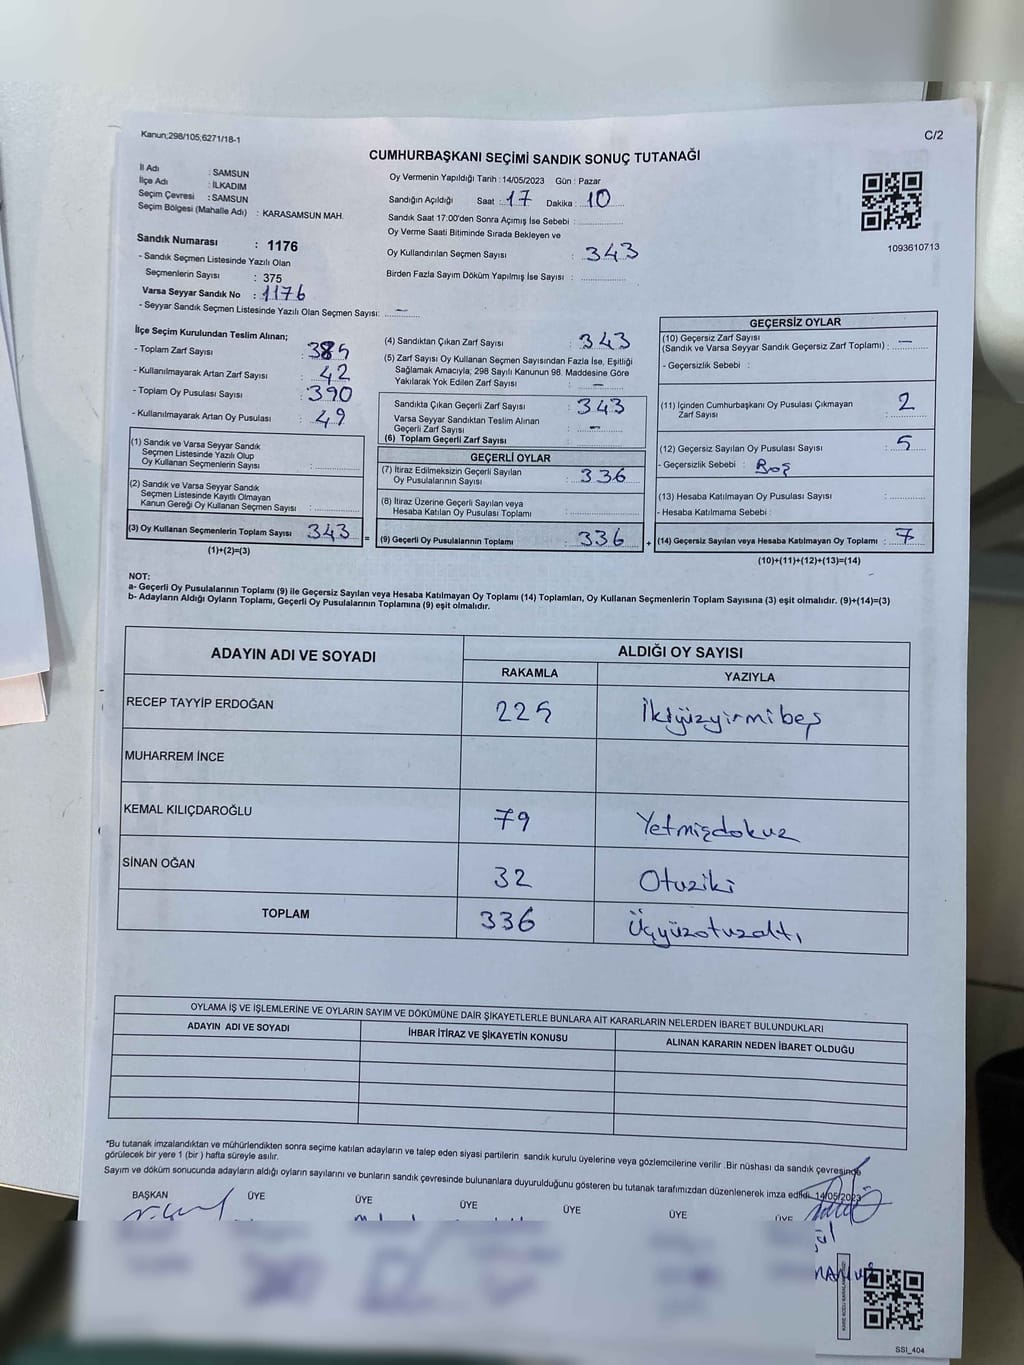 Kanun;298/105;6271/18-1
C/2
CUMHURBAŞKANI SEÇİMİ SANDIK SONUÇ TUTANAĞI
İl Adı : SAMSUN
İlçe Adı : İLKADIM
Seçim Çevresi : SAMSUN
Seçim Bölgesi (Mahalle Adı) : KARASAMSUN MAH.
Sandık Numarası : 1176
- Sandık Seçmen Listesinde Yazılı Olan
Seçmenlerin Sayısı : 375
Varsa Seyyar Sandık No : 1176
- Seyyar Sandık Seçmen Listesinde Yazılı Olan Seçmen Sayısı: —
Oy Vermenin Yapıldığı Tarih : 14/05/2023 Gün : Pazar
Sandığın Açıldığı Saat : 17 Dakika : 10
Sandık Saat 17:00'den Sonra Açılmış İse Sebebi :
Oy Verme Saati Bitiminde Sırada Bekleyen ve
Oy Kullandırılan Seçmen Sayısı : 343
Birden Fazla Sayım Döküm Yapılmış İse Sayısı :
1093610713
İlçe Seçim Kurulundan Teslim Alınan;
- Toplam Zarf Sayısı : 385
- Kullanılmayarak Artan Zarf Sayısı : 42
- Toplam Oy Pusulası Sayısı : 390
- Kullanılmayarak Artan Oy Pusulası : 49
(1) Sandık ve Varsa Seyyar Sandık
Seçmen Listesinde Yazılı Olup
Oy Kullanan Seçmenlerin Sayısı :
(2) Sandık ve Varsa Seyyar Sandık
Seçmen Listesinde Kayıtlı Olmayan
Kanun Gereği Oy Kullanan Seçmen Sayısı :
(3) Oy Kullanan Seçmenlerin Toplam Sayısı : 343 =
(1)+(2)=(3)
(4) Sandıktan Çıkan Zarf Sayısı : 343
(5) Zarf Sayısı Oy Kullanan Seçmen Sayısından Fazla İse, Eşitliği
Sağlamak Amacıyla; 298 Sayılı Kanunun 98. Maddesine Göre
Yakılarak Yok Edilen Zarf Sayısı : —
Sandıkta Çıkan Geçerli Zarf Sayısı : 343
Varsa Seyyar Sandıktan Teslim Alınan
Geçerli Zarf Sayısı : —
(6) Toplam Geçerli Zarf Sayısı
GEÇERLİ OYLAR
(7) İtiraz Edilmeksizin Geçerli Sayılan
Oy Pusulalarının Sayısı : 336
(8) İtiraz Üzerine Geçerli Sayılan veya
Hesaba Katılan Oy Pusulası Toplamı :
(9) Geçerli Oy Pusulalarının Toplamı : 336 +
GEÇERSİZ OYLAR
(10) Geçersiz Zarf Sayısı
(Sandık ve Varsa Seyyar Sandık Geçersiz Zarf Toplamı) : —
- Geçersizlik Sebebi :
(11) İçinden Cumhurbaşkanı Oy Pusulası Çıkmayan
Zarf Sayısı : 2
(12) Geçersiz Sayılan Oy Pusulası Sayısı : 5
- Geçersizlik Sebebi : Boş
(13) Hesaba Katılmayan Oy Pusulası Sayısı :
- Hesaba Katılmama Sebebi :
(14) Geçersiz Sayılan veya Hesaba Katılmayan Oy Toplamı : 7
(10)+(11)+(12)+(13)=(14)
NOT:
a- Geçerli Oy Pusulalarının Toplamı (9) ile Geçersiz Sayılan veya Hesaba Katılmayan Oy Toplamı (14) Toplamları, Oy Kullanan Seçmenlerin Toplam Sayısına (3) eşit olmalıdır. (9)+(14)=(3)
b- Adayların Aldığı Oyların Toplamı, Geçerli Oy Pusulalarının Toplamına (9) eşit olmalıdır.
ADAYIN ADI VE SOYADI
ALDIĞI OY SAYISI
RAKAMLA YAZIYLA
RECEP TAYYİP ERDOĞAN 225 İkiyüzyirmibeş
MUHARREM İNCE
KEMAL KILIÇDAROĞLU 79 Yetmişdokuz
SİNAN OĞAN 32 Otuziki
TOPLAM 336 Üçyüzotuzaltı
OYLAMA İŞ VE İŞLEMLERİNE VE OYLARIN SAYIM VE DÖKÜMÜNE DAİR ŞİKAYETLERLE BUNLARA AİT KARARLARIN NELERDEN İBARET BULUNDUKLARI
ADAYIN ADI VE SOYADI İHBAR İTİRAZ VE ŞİKAYETİN KONUSU ALINAN KARARIN NEDEN İBARET OLDUĞU
*Bu tutanak imzalandıktan ve mühürlendikten sonra seçime katılan adayların ve talep eden siyasi partilerin sandık kurulu üyelerine veya gözlemcilerine verilir .Bir nüshası da sandık çevresinde
görülecek bir yere 1 (bir ) hafta süreyle asılır.
Sayım ve döküm sonucunda adayların aldığı oyların sayılarını ve bunların sandık çevresinde bulunanlara duyurulduğunu gösteren bu tutanak tarafımızdan düzenlenerek imza edildi. 14/05/2023
BAŞKAN ÜYE ÜYE ÜYE ÜYE ÜYE ÜYE
SSI_404